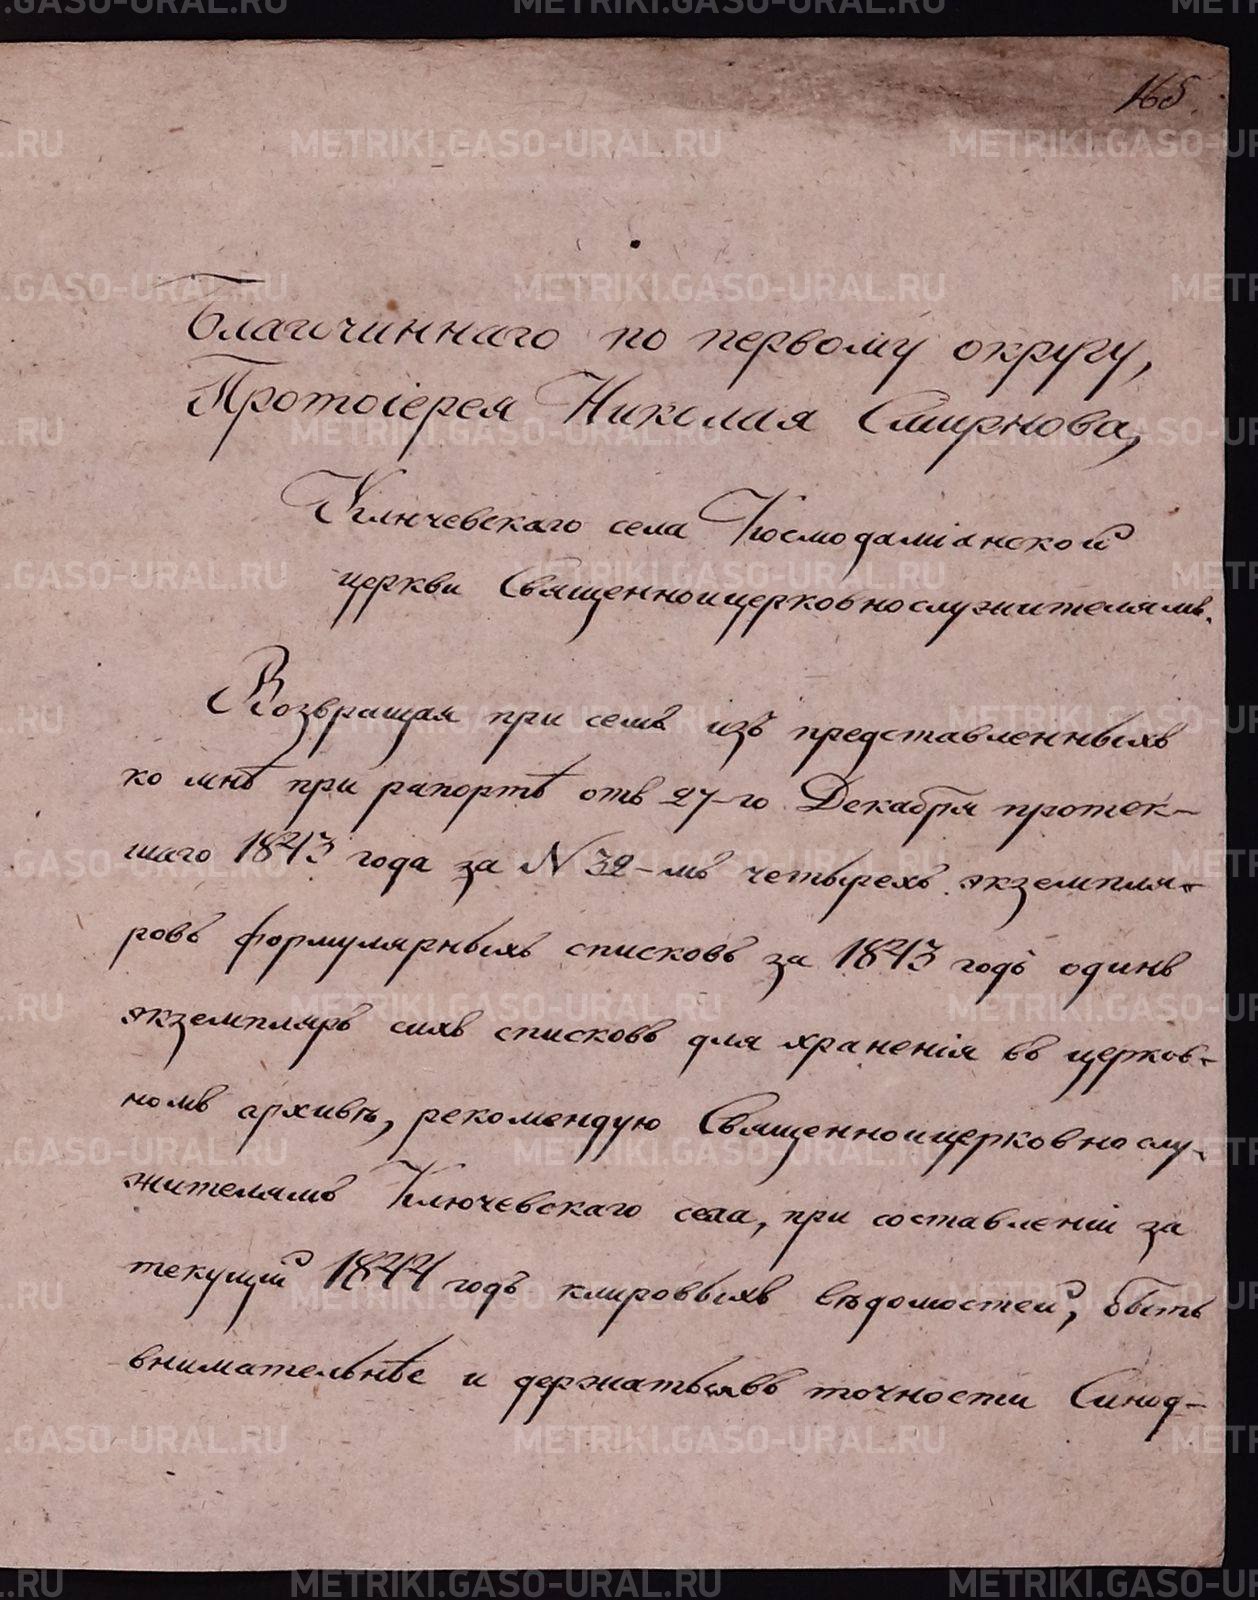 165.
Благочиннаго по первому округу,
Протоіерея Николая Смирнова,
Ключевскаго села Космодаміанской
церкви Священноицерковнослужителямъ.
Возвращая при семъ изъ представленныхъ
ко мнѣ при рапортѣ отъ 27-го Декабря протек-
шаго 1843 года за N 32-мъ четырехъ экземпля-
ровъ формулярныхъ списковъ за 1843 годъ одинъ
экземпляръ сихъ списковъ для храненія въ церков-
номъ архивѣ, рекомендую Священноицерковнослу-
жителямъ Ключевскаго села, при составленіи за
текущій 1844 годъ клировыхъ вѣдомостей, быть
внимательнѣе и держаться въ точности Синод-
METRIKI.GASO-URAL.RU